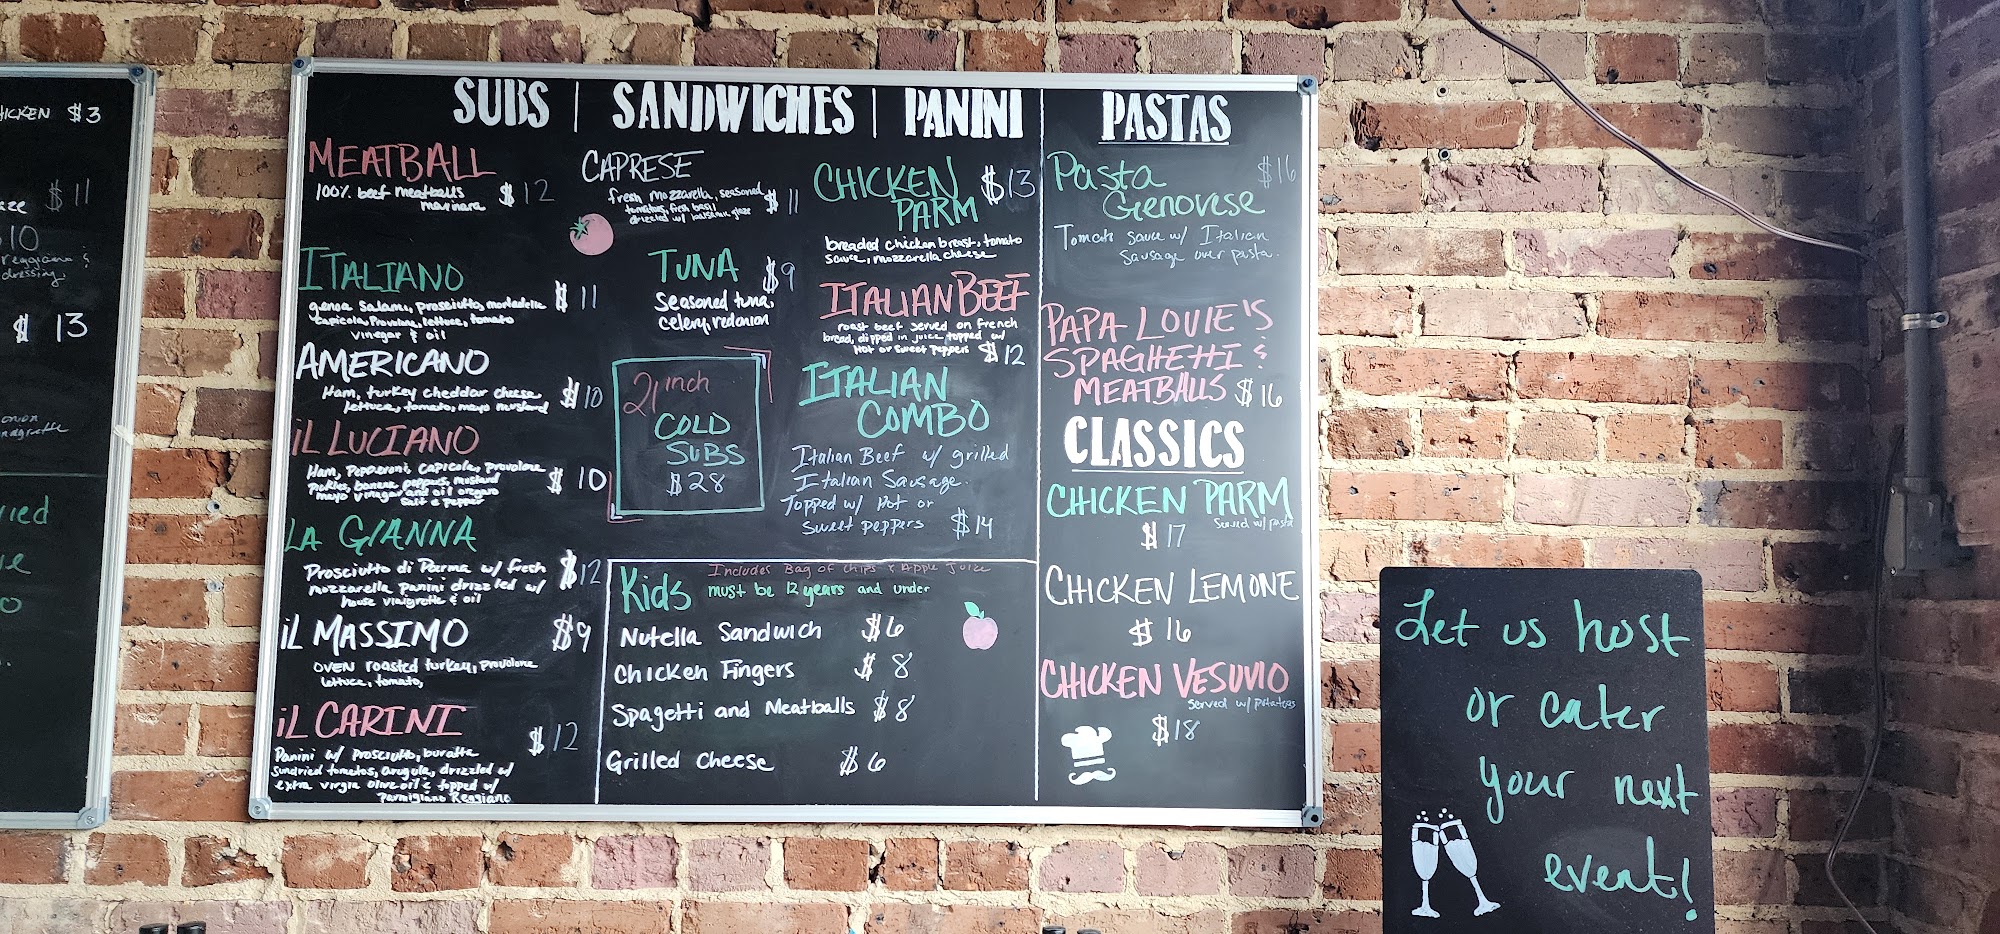 HICKEN $3
$11
aze
10
reggiano &
dressing,
$ 13
onion
ried
SUBS | SANDWICHES | PANINI
MEATBALL
100% beef meatballs
marinara
$12
ITALIANO
genoa Salami, prosciutto, mortadella
capicola, Provolone, lettuce, tomato
vinegar & oil
$ 11
AMERICANO
Ham, turkey cheddar cheese
lettuce, tomato, mayo mustard
$10
iL LUCIANO
Ham, Pepperoni, capicola, provolone
pickles, banana peppers, mustard
mayo vinegar and oil oregano
salt & pepper
$ 10
LA GIANNA
Prosciutto di Parma w/ fresh
mozzarella panini drizzled w/
house viniagrette & oil
$12
iL MASSIMO
$9
OVEN roasted turkey, provolone
lettuce, tomato,
iL CARINI
$ 12
Panini w/ prosciutto, buratta
Sundried tomatos, arugula, drizzled w/
extra virgin olive oil & topped w/
Parmigiano Reggiano
CAPRESE
fresh mozzarella, seasoned
tomatoes, fresh basil
drizzled w/ balsamic glaze
$ 11
TUNA
$9
Seasoned tuna,
celery, red onion
21 inch
COLD
SUBS
$ 28
CHICKEN
PARM
$13
breaded chicken breast, tomato
sauce, mozzarella cheese
ITALIAN BEEF
roast beef served on french
bread, dipped in juice topped w/
Hot or Sweet Peppers
$12
ITALIAN
COMBO
Italian Beef w/ grilled
Italian Sausage.
Topped w/ Hot or
Sweet peppers
$14
Kids
Includes Bag of Chips & Apple Juice
must be 12 years and under
Nutella Sandwich $6
Chicken Fingers $ 8
Spagetti and Meatballs $ 8
Grilled Cheese $ 6
PASTAS
Pasta
Genovese
$16
Tomato sauce w/ Italian
sausage over pasta.
PAPA LOUIE'S
SPAGHETTI &
MEATBALLS $16
CLASSICS
CHICKEN PARM
Served w/ pasta
$ 17
CHICKEN LEMONE
$ 16
CHICKEN VESUVIO
Served w/ potatoes
$18
Let us host
or cater
your next
event!